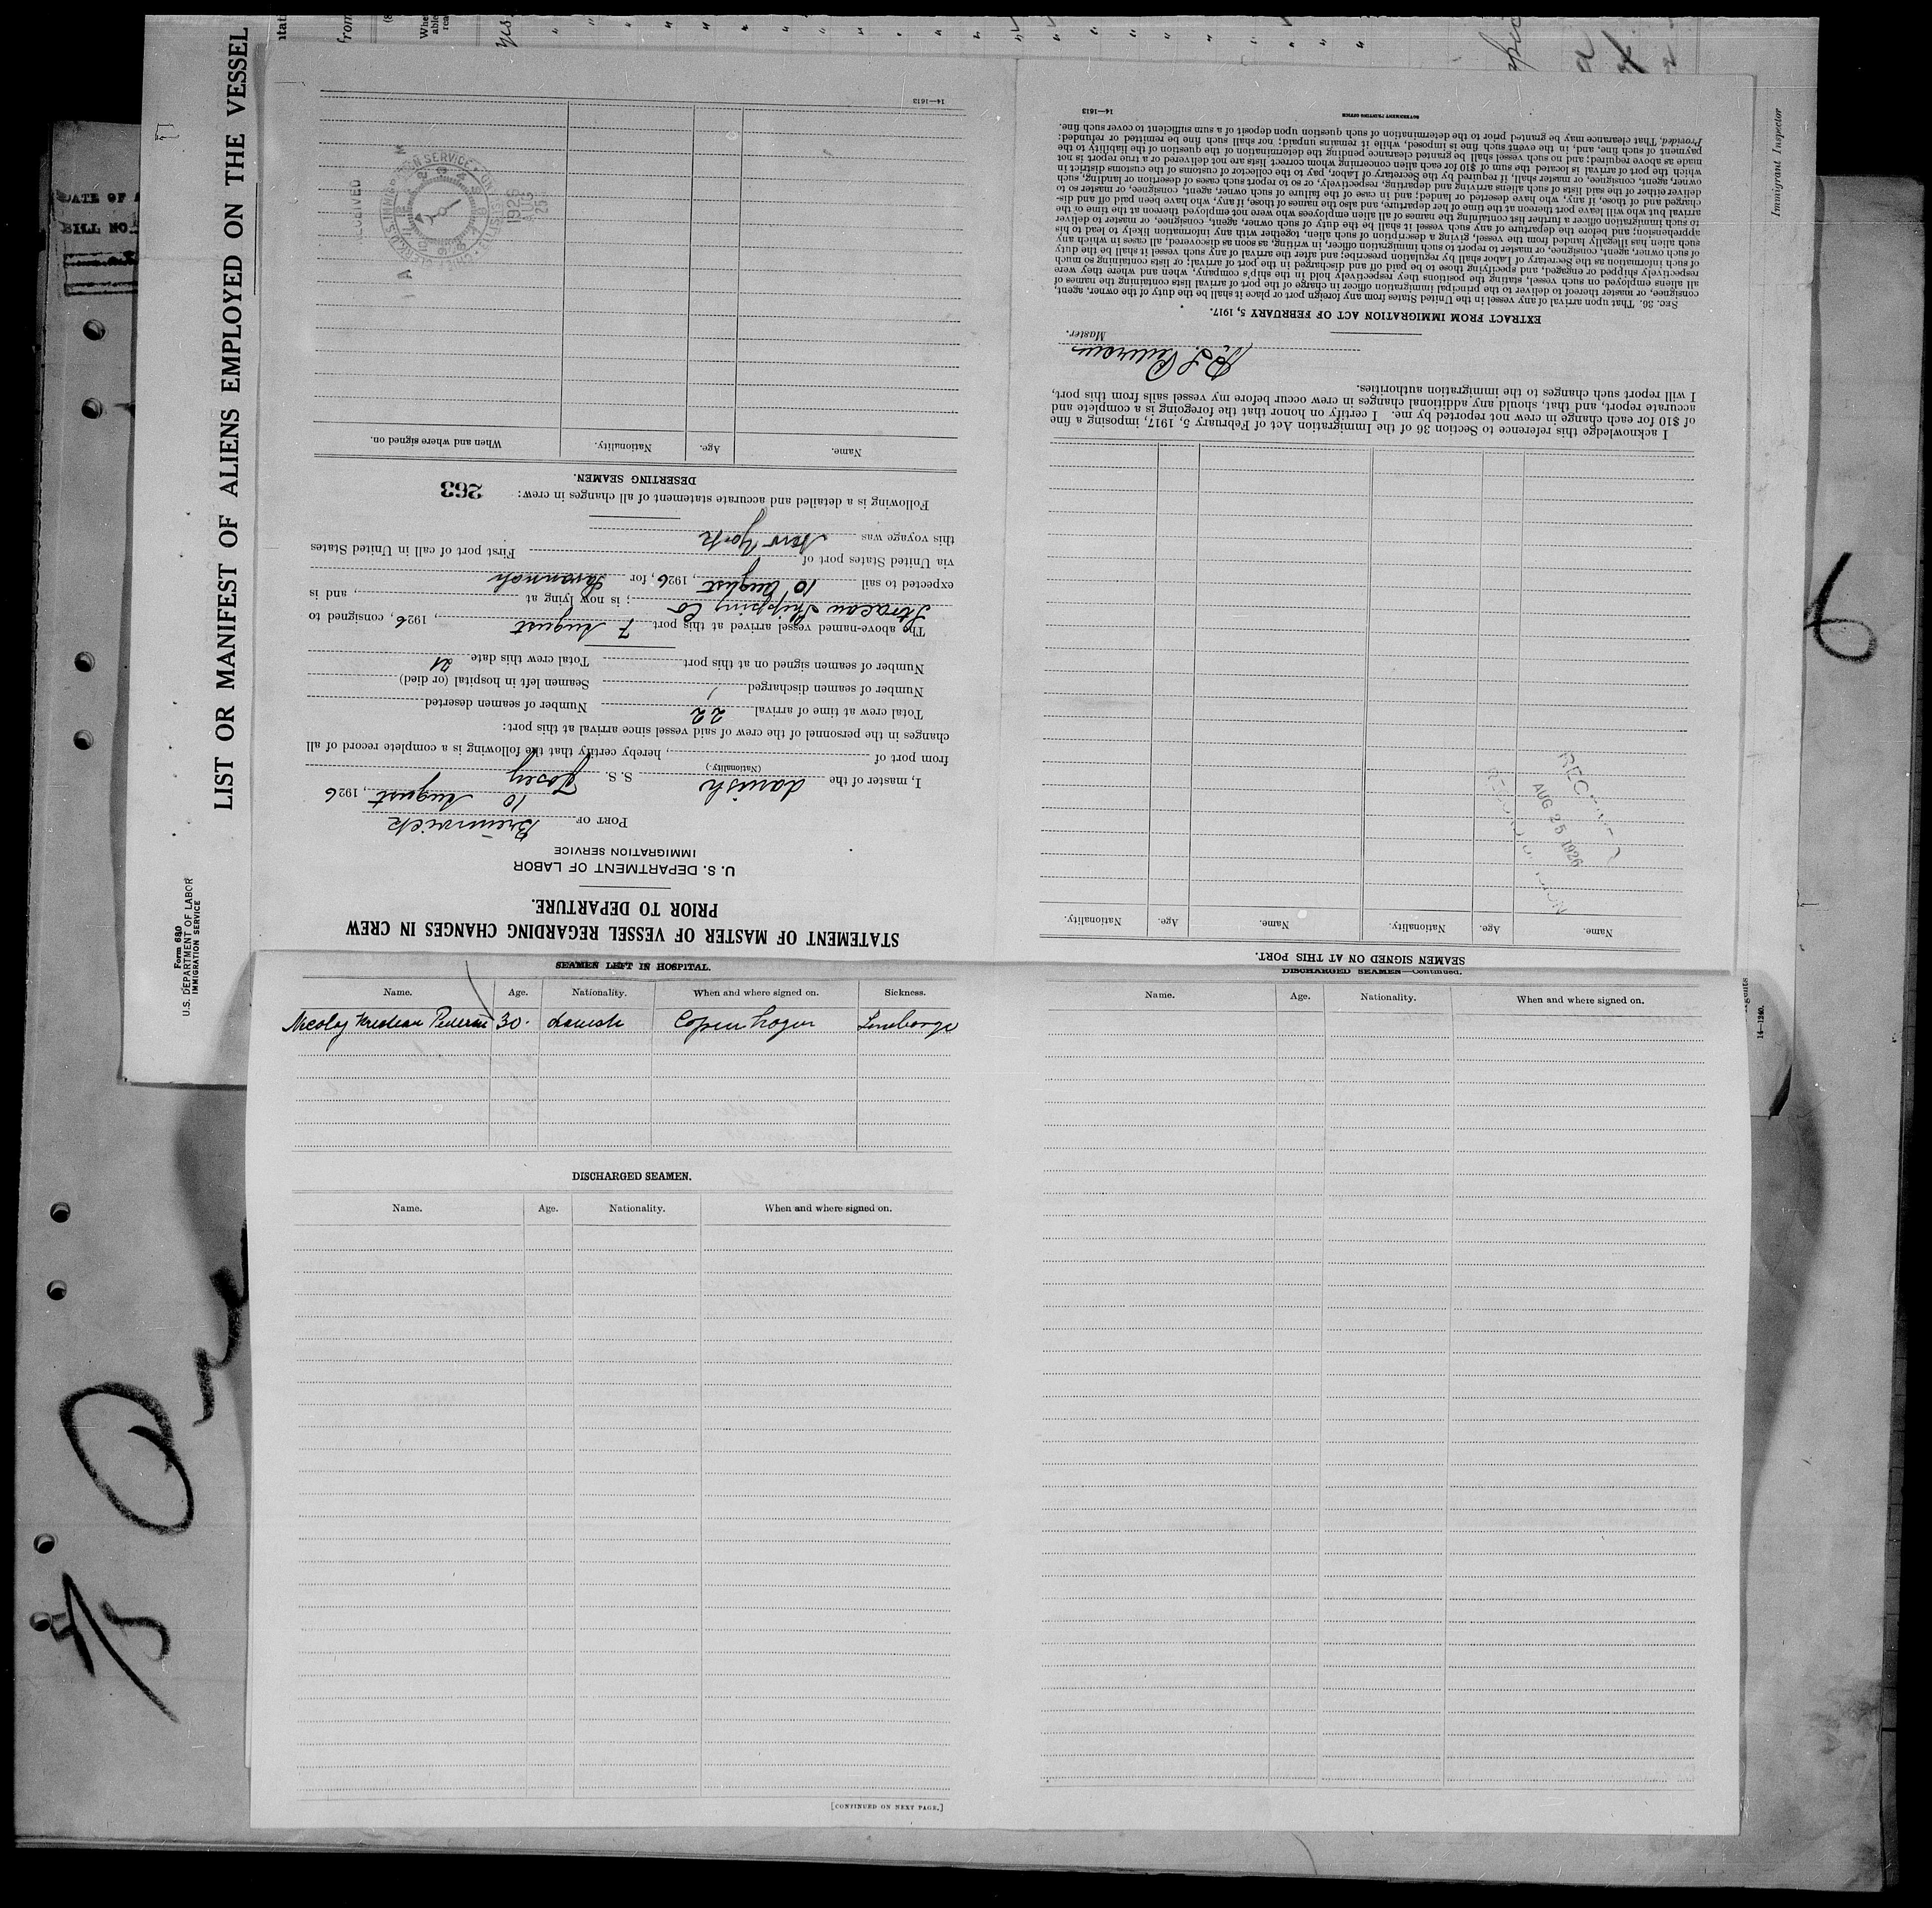 LIST OR MANIFEST OF ALIENS EMPLOYED ON THE VESSEL
Form 680
U.S. DEPARTMENT OF LABOR
IMMIGRATION SERVICE
DATE OF
BILL NO.
Immigrant Inspector
14—1240.
STATEMENT OF MASTER OF VESSEL REGARDING CHANGES IN CREW
PRIOR TO DEPARTURE.
U. S. DEPARTMENT OF LABOR
IMMIGRATION SERVICE
PORT OF Brunswick
10 August, 1926
I, master of the danish S. S. Josey
(Nationality.)
from port of , hereby certify that the following is a complete record of all
changes in the personnel of the crew of said vessel since arrival at this port:
Total crew at time of arrival 22 Number of seamen deserted
Number of seamen discharged Seamen left in hospital (or died)
Number of seamen signed on at this port Total crew this date 21
The above-named vessel arrived at this port 7 August, 1926, consigned to
Strachan Shipping Co; is now lying at , and is
expected to sail 10 August, 1926, for Savannah
via United States port of First port of call in United States
this voyage was New York
Following is a detailed and accurate statement of all changes in crew: 263
DESERTING SEAMEN.
Name. Age. Nationality. When and where signed on.
RECEIVED
14—1613
SEAMEN SIGNED ON AT THIS PORT.
Name. Age. Nationality. Name. Age. Nationality.
AUG 25 1926
I acknowledge this reference to Section 36 of the Immigration Act of February 5, 1917, imposing a fine
of $10 for each change in crew not reported by me. I certify on honor that the foregoing is a complete and
accurate report, and that, should any additional changes in crew occur before my vessel sails from this port,
I will report such changes to the immigration authorities.
Master.
EXTRACT FROM IMMIGRATION ACT OF FEBRUARY 5, 1917.
SEC. 36. That upon arrival of any vessel in the United States from any foreign port or place it shall be the duty of the owner, agent,
consignee, or master thereof to deliver to the principal immigration officer in charge of the port of arrival lists containing the names of
all aliens employed on such vessel, stating the positions they respectively hold in the ship's company, when and where they were
respectively shipped or engaged, and specifying those to be paid off and discharged in the port of arrival; or lists containing so much
of such information as the Secretary of Labor shall by regulation prescribe; and after the arrival of any such vessel it shall be the duty
of such owner, agent, consignee, or master to report to such immigration officer, in writing, as soon as discovered, all cases in which any
such alien has illegally landed from the vessel, giving a description of such alien, together with any information likely to lead to his
apprehension; and before the departure of any such vessel it shall be the duty of such owner, agent, consignee, or master to deliver
to such immigration officer a further list containing the names of all alien employees who were not employed thereon at the time of the
arrival but who will leave port thereon at the time of her departure, and also the names of those, if any, who have been paid off and dis-
charged and of those, if any, who have deserted or landed; and in case of the failure of such owner, agent, consignee, or master so to
deliver either of the said lists of such aliens arriving and departing, respectively, or so to report such cases of desertion or landing, such
owner, agent, consignee, or master shall, if required by the Secretary of Labor, pay to the collector of customs of the customs district in
which the port of arrival is located the sum of $10 for each alien concerning whom correct lists are not delivered or a true report is not
made as above required; and no such vessel shall be granted clearance pending the determination of the question of the liability to the
payment of such fine, and, in the event such fine is imposed, while it remains unpaid; nor shall such fine be remitted or refunded:
Provided, That clearance may be granted prior to the determination of such question upon deposit of a sum sufficient to cover such fine.
GOVERNMENT PRINTING OFFICE
14—1613
SEAMEN LEFT IN HOSPITAL.
Name. Age. Nationality. When and where signed on. Sickness.
30 danish Copenhagen
DISCHARGED SEAMEN.
Name. Age. Nationality. When and where signed on.
[CONTINUED ON NEXT PAGE.]
DISCHARGED SEAMEN—Continued.
Name. Age. Nationality. When and where signed on.
6